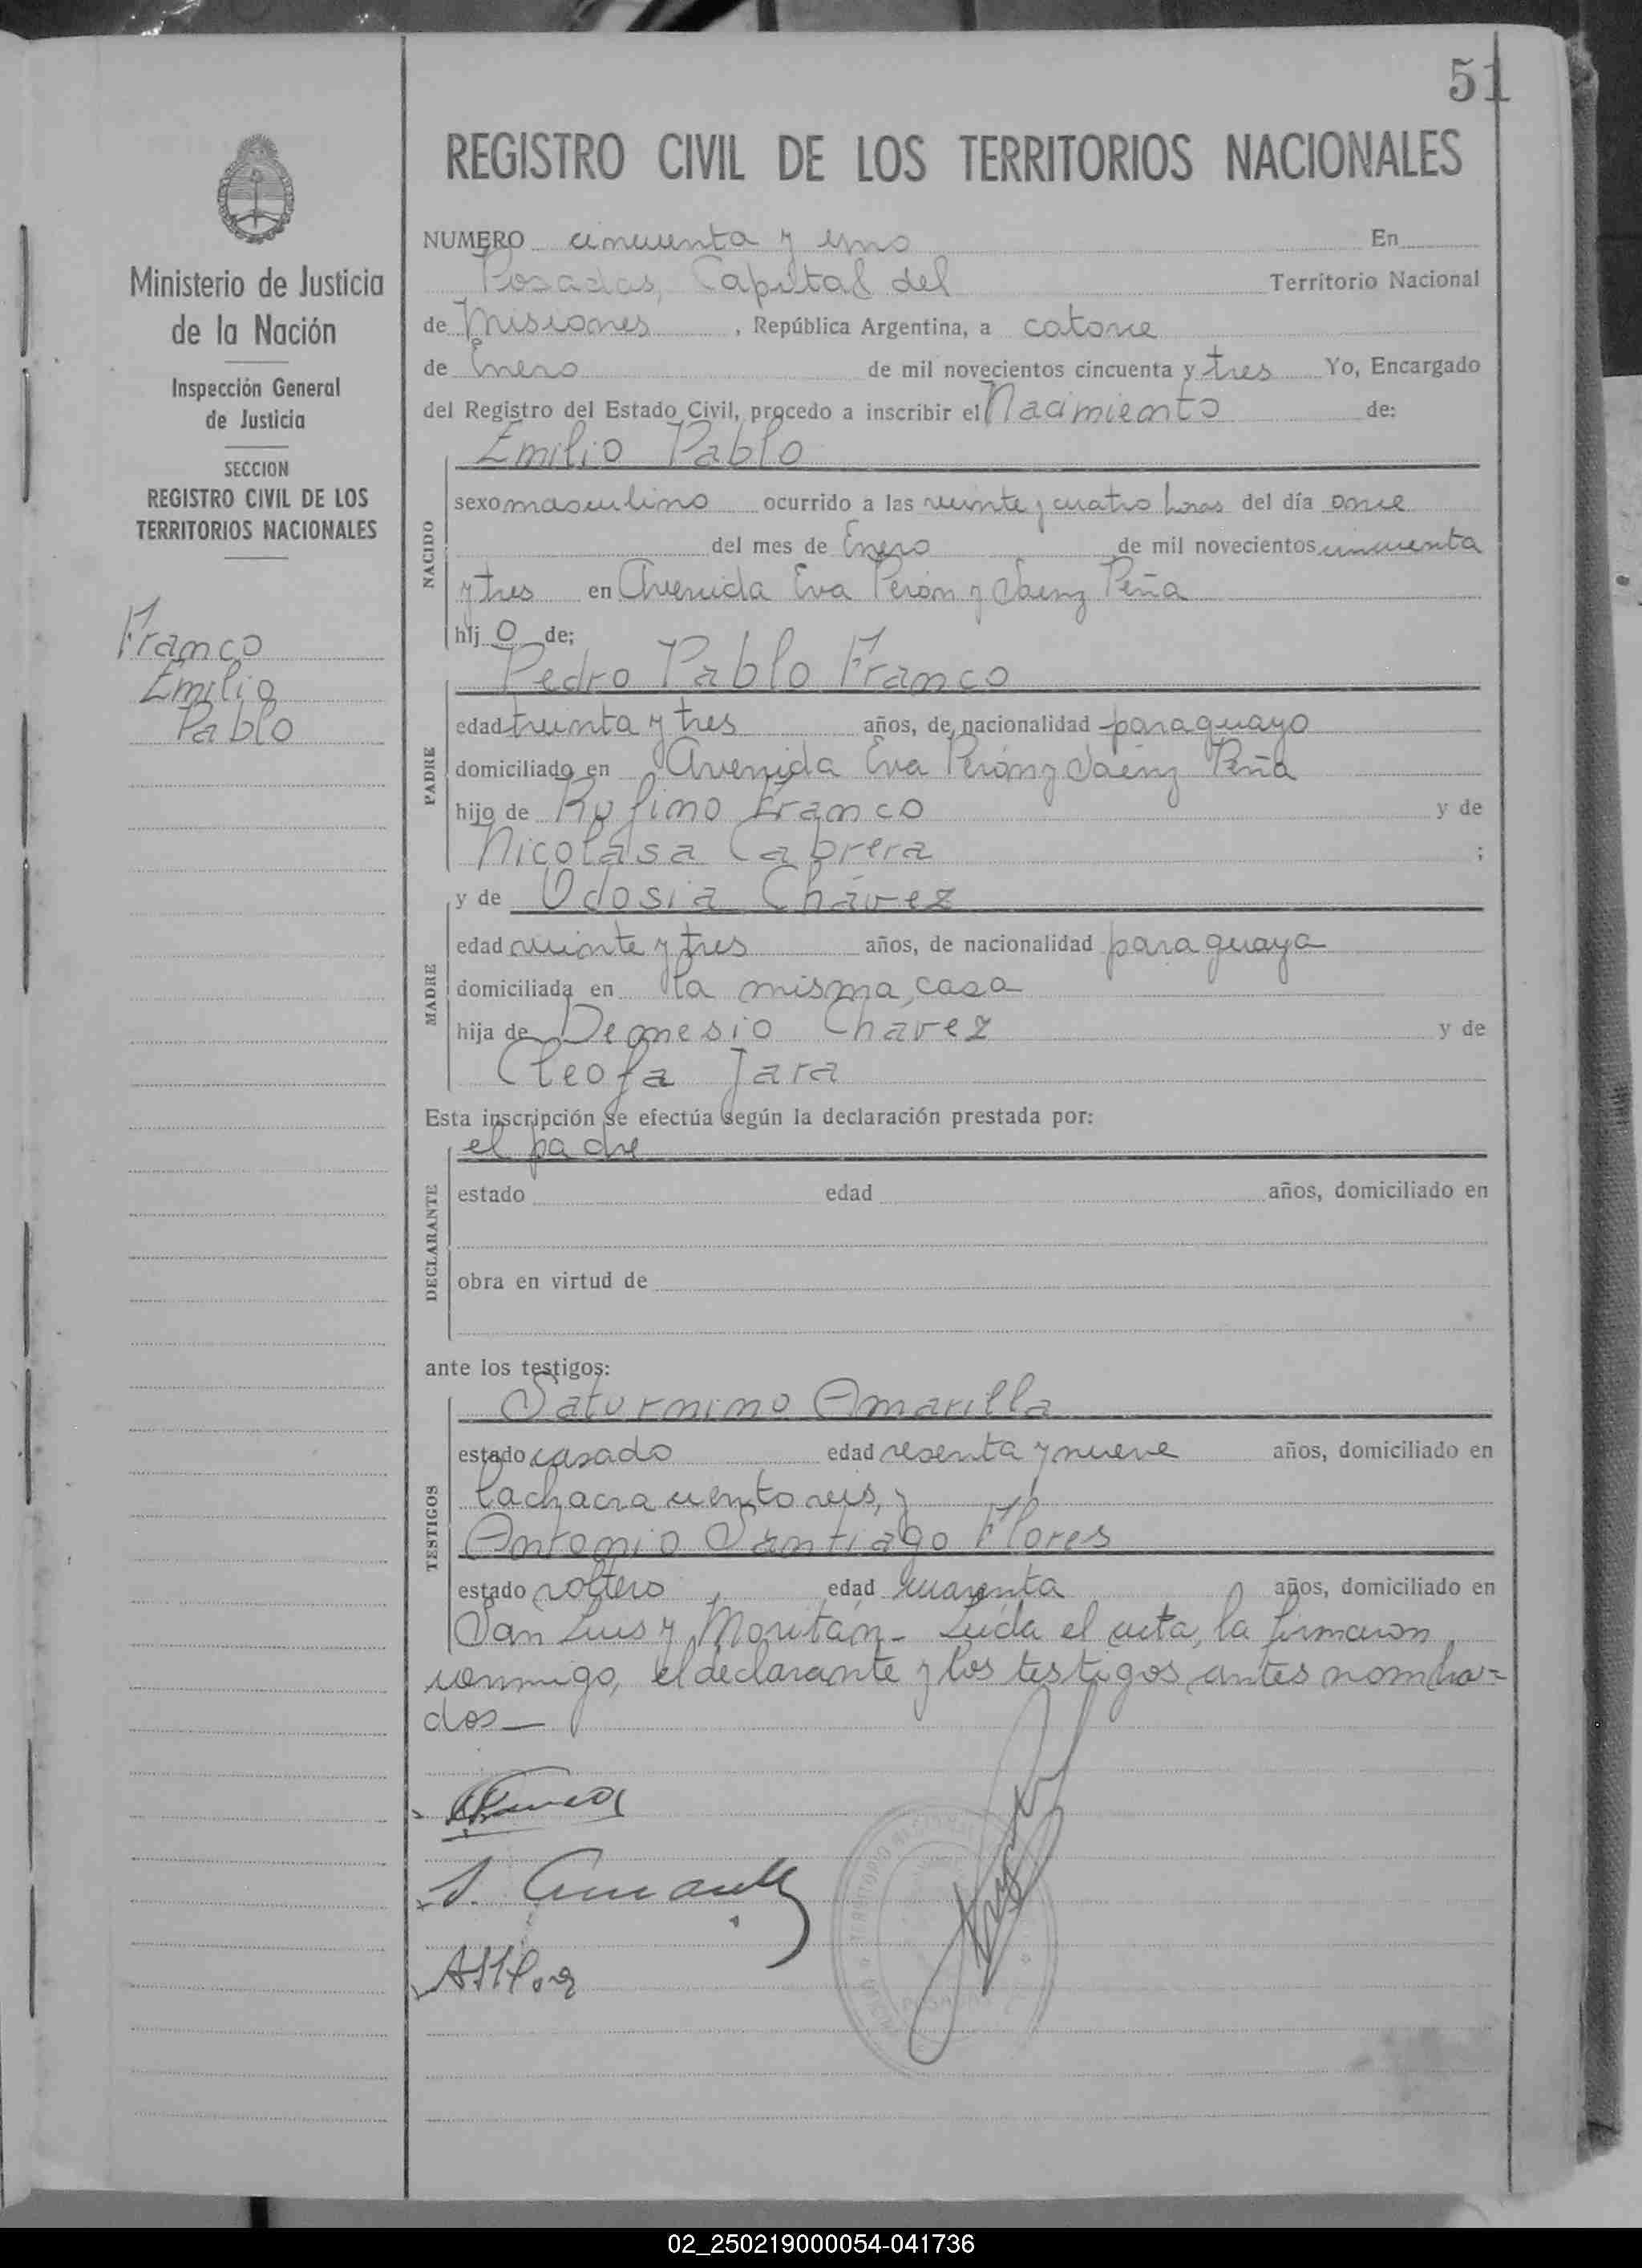 51
REGISTRO CIVIL DE LOS TERRITORIOS NACIONALES
Ministerio de Justicia
de la Nación
Inspección General
de Justicia
SECCION
REGISTRO CIVIL DE LOS
TERRITORIOS NACIONALES
Franco
Emilio
Pablo
NUMERO cincuenta y uno En
Posadas, Capital del Territorio Nacional
de Misiones, República Argentina, a catorce
de Enero de mil novecientos cincuenta y tres Yo, Encargado
del Registro del Estado Civil, procedo a inscribir el Nacimiento de:
Emilio Pablo
NACIDO
sexo masculino ocurrido a las veinte y cuatro horas del día once
del mes de Enero de mil novecientos cincuenta
y tres en Avenida Eva Perón y Saenz Peña
hij o de:
Pedro Pablo Franco
PADRE
edad treinta y tres años, de nacionalidad paraguayo
domiciliado en Avenida Eva Perón y Saenz Peña
hijo de Rufino Franco y de
Nicolasa Cabrera ;
y de Odosia Chávez
MADRE
edad veinte y tres años, de nacionalidad paraguaya
domiciliada en la misma casa
hija de Demesio Chávez y de
Cleofa Jara
Esta inscripción se efectúa según la declaración prestada por:
el padre
DECLARANTE
estado edad años, domiciliado en
obra en virtud de
ante los testigos:
Saturnino Amarilla
TESTIGOS
estado casado edad sesenta y nueve años, domiciliado en
la chacra ciento seis, y
Antonio Santiago Flores
estado soltero edad cuarenta años, domiciliado en
San Luis y Moritán.- Leída el acta, la firmaron
conmigo, el declarante y los testigos antes nombra=
dos—
S. Amarilla
02_250219000054-041736